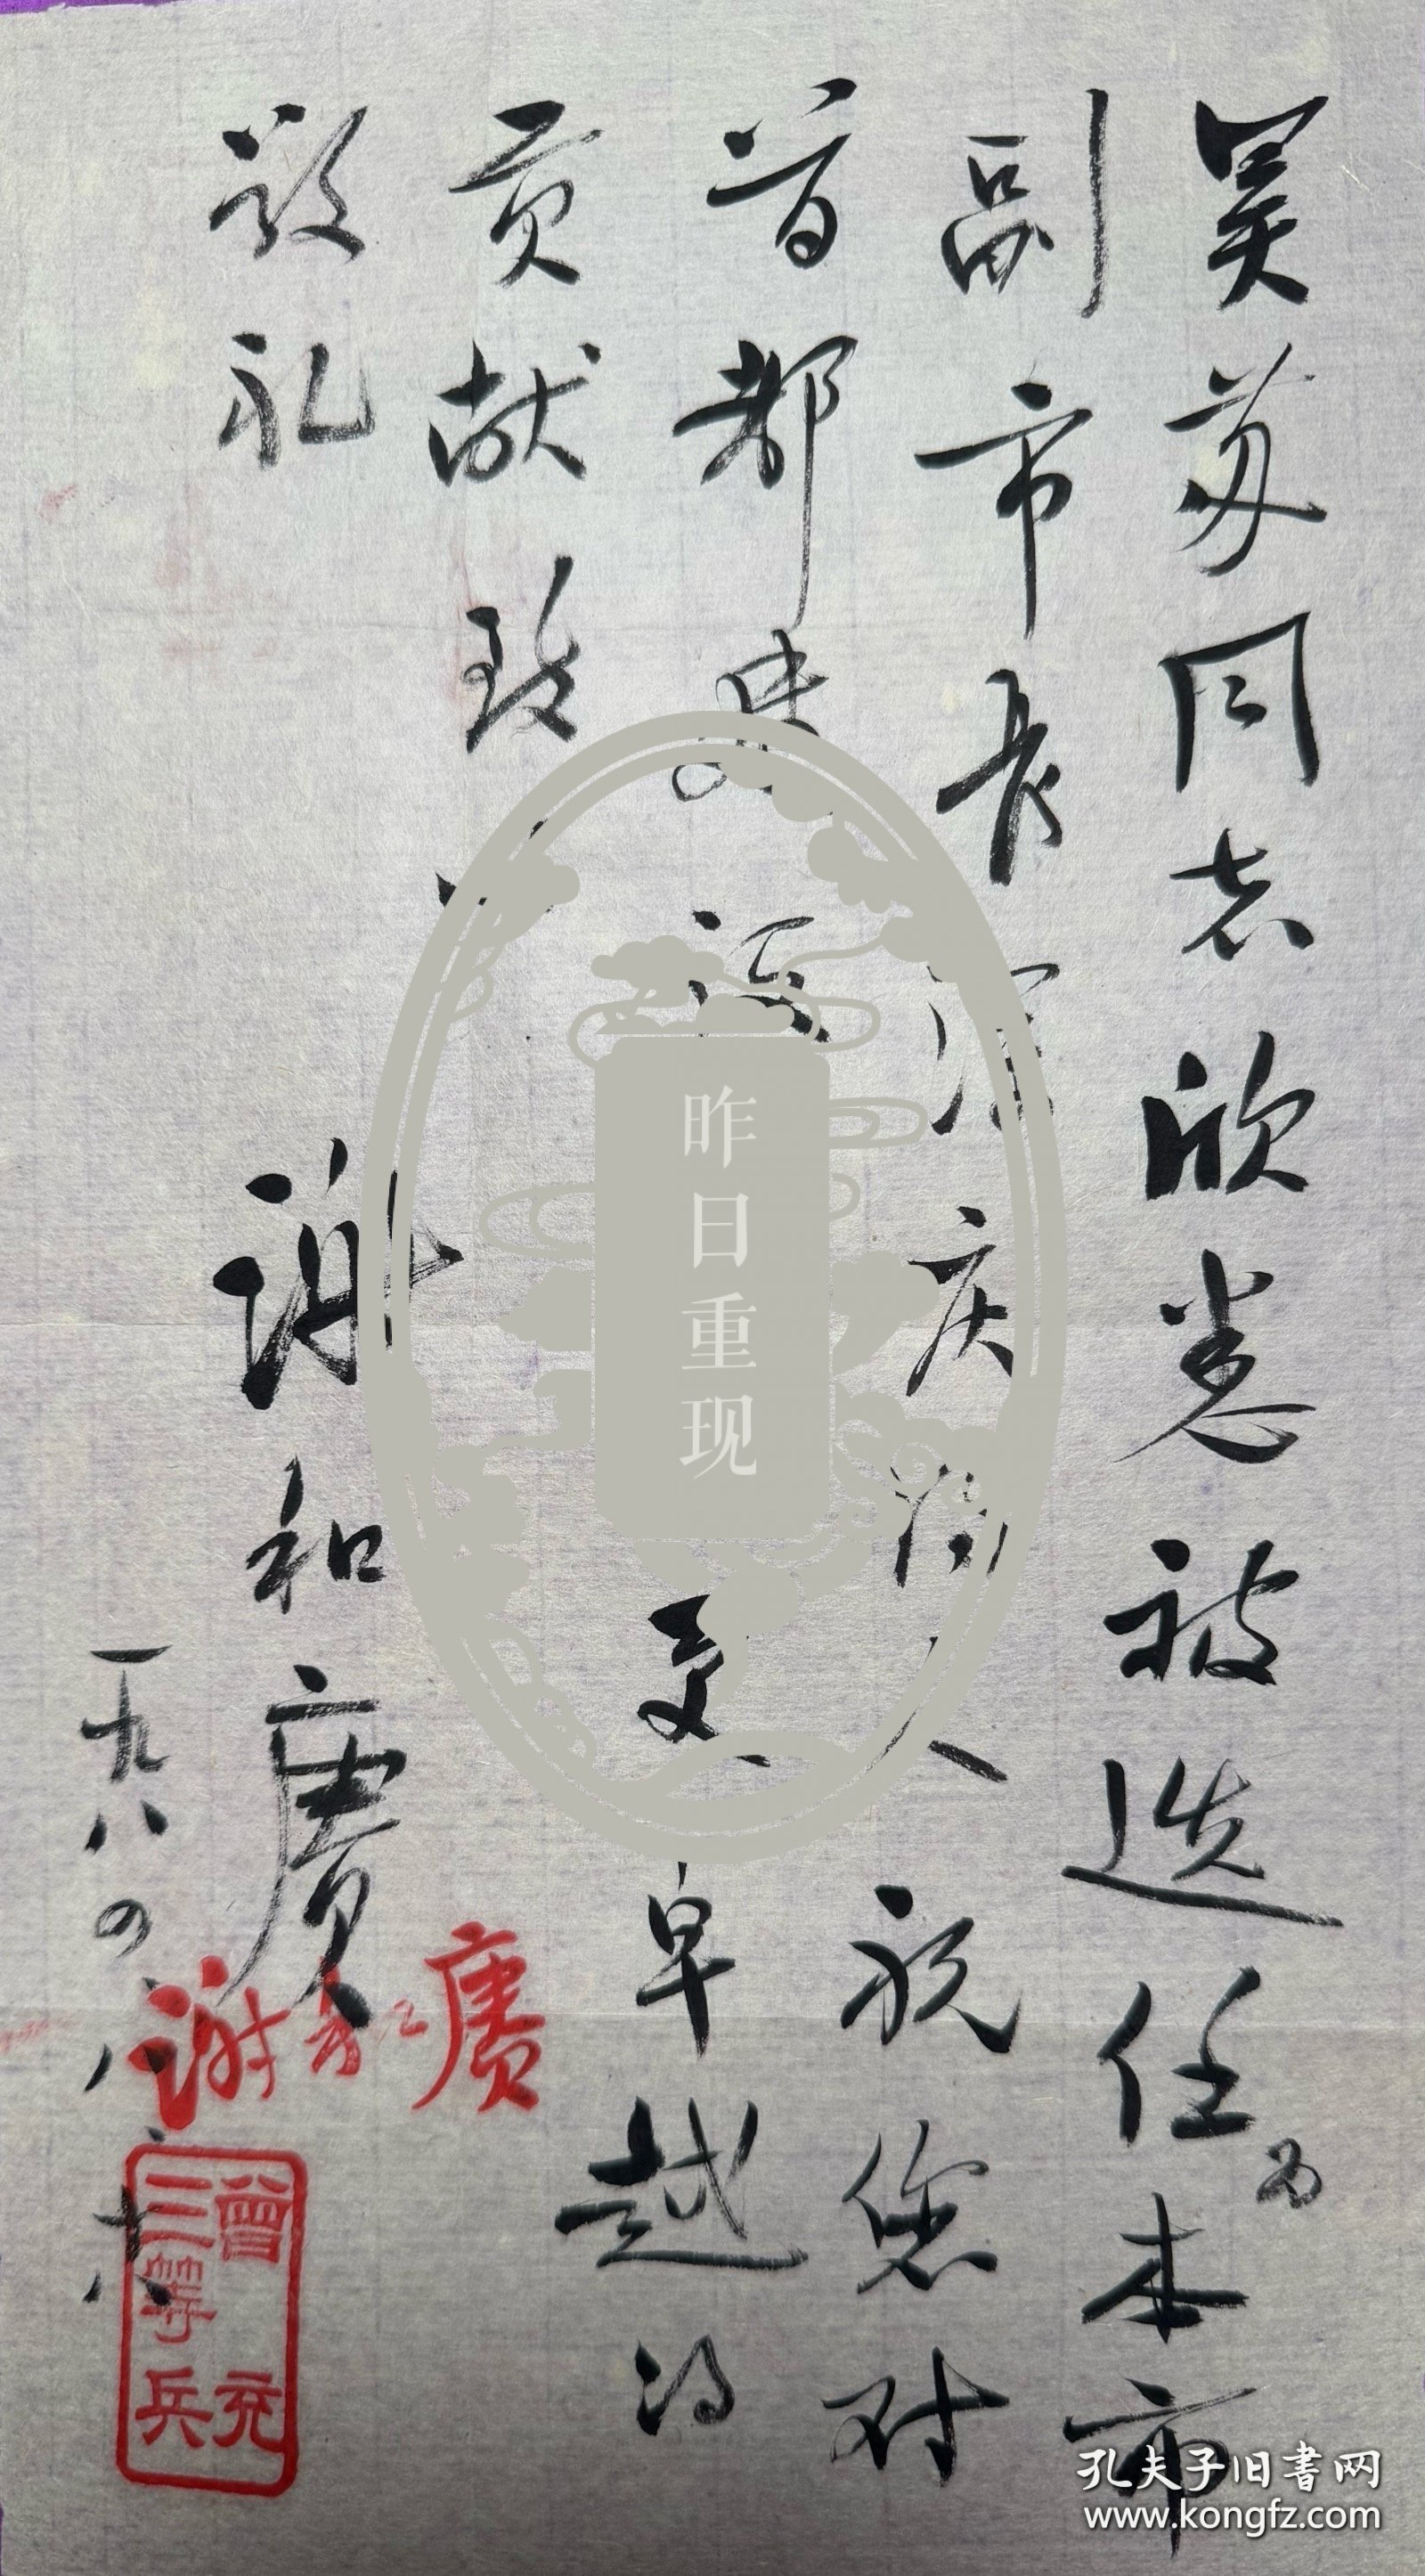 昊苏同志欣悉被选任为本市
副市长深庆得人祝您对
首都建设更卓越的
贡献致
敬礼
谢和赓
一九八四、八、十八
谢和赓
曾充
三等兵
昨日重现
孔夫子旧書网
www.kongfz.com